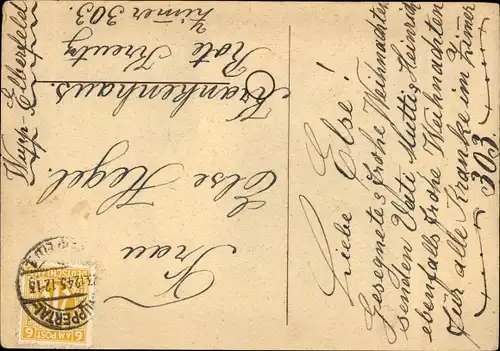 Liebe Else!
Gesegnete, frohe Weihnachten
senden Vati Mutti, Heinrich
ebenfalls frohe Weihnachten
für alle Kranke im Zimer
303
Frau
Else Hegel.
Krankenhaus.
Rote Kreutz
Zimer 303.
Wupp-Elberfeld
WUPPERTAL
12.45.12-13
DEUTSCHLAND
AM POST
6 6